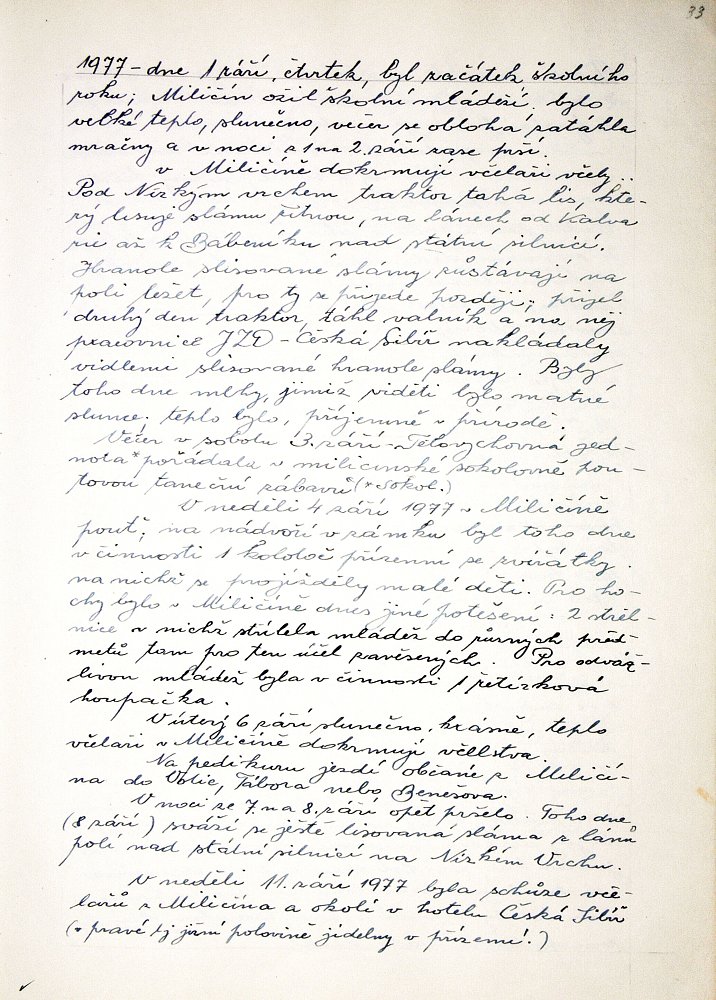 33
1977 – dne 1 září, čtvrtek, byl začátek školního
roku; Miličín ožil školní mládeží. bylo
velké teplo, slunečno, večer se obloha zatáhla
mračny a v noci z 1 na 2. září zase prší.
v Miličíně dokrmují včelaři včely..
Pod Nízkým vrchem traktor tahá lis, kte-
rý lisuje slámu žitnou, na lánech od Kalva
rie až k Bábeníku nad státní silnicí.
Hranole slisované slámy zůstávají na
poli ležet, pro ty se přijede později; přijel
druhý den traktor, táhl valník a na něj
pracovnice JZD – Česká Sibiř nakládaly
vidlemi slisované hranole slámy. Byly
toho dne mlhy, jimiž viděti bylo matné
slunce; teplo bylo, příjemně v přírodě.
Večer v sobotu 3. září – Tělovýchovná jed-
nota * pořádala v miličínské sokolovně pou-
ťovou taneční zábavu (* Sokol.)
V neděli 4 září 1977 v Miličíně
pouť; na nádvoří v zámku byl toho dne
v činnosti 1 kolotoč přízemní se zvířátky.
na nichž se projížděly malé děti. Pro ho-
chy bylo v Miličíně dnes jiné potěšení: 2 střel-
nice v nichž střílela mládež do různých před-
mětů tam pro ten účel zavěšených. Pro odváž-
livou mládež byla v činnosti 1 řetízková
houpačka.
V úterý 6 září slunečno, krásně, teplo
včelaři v Miličíně dokrmují včelstva.
Na pedikuru jezdí občané z Miličí-
na do Votic, Tábora nebo Benešova.
V noci ze 7. na 8. září opět pršelo. Toho dne
(8 září) sváží se ještě lisovaná sláma z lánů
polí nad státní silnicí na Nízkém Vrchu.
V neděli 11. září 1977 byla schůze vče-
lařů z Miličína a okolí v hotelu Česká Sibiř
(v pravé tj jižní polovině jídelny v přízemí.)